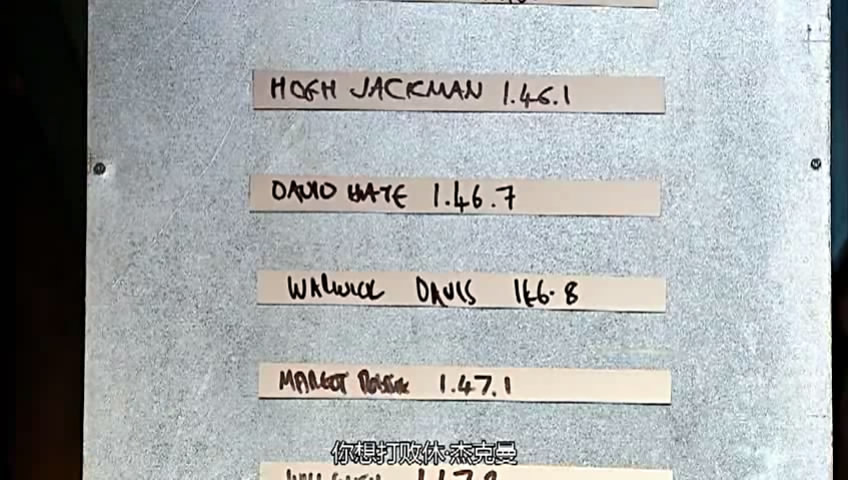 HUGH JACKMAN 1.46.1
DAVID HAYE 1.46.7
WARWICK DAVIS 1.46.8
MARGOT ROBBIE 1.47.1
你想打败休·杰克曼